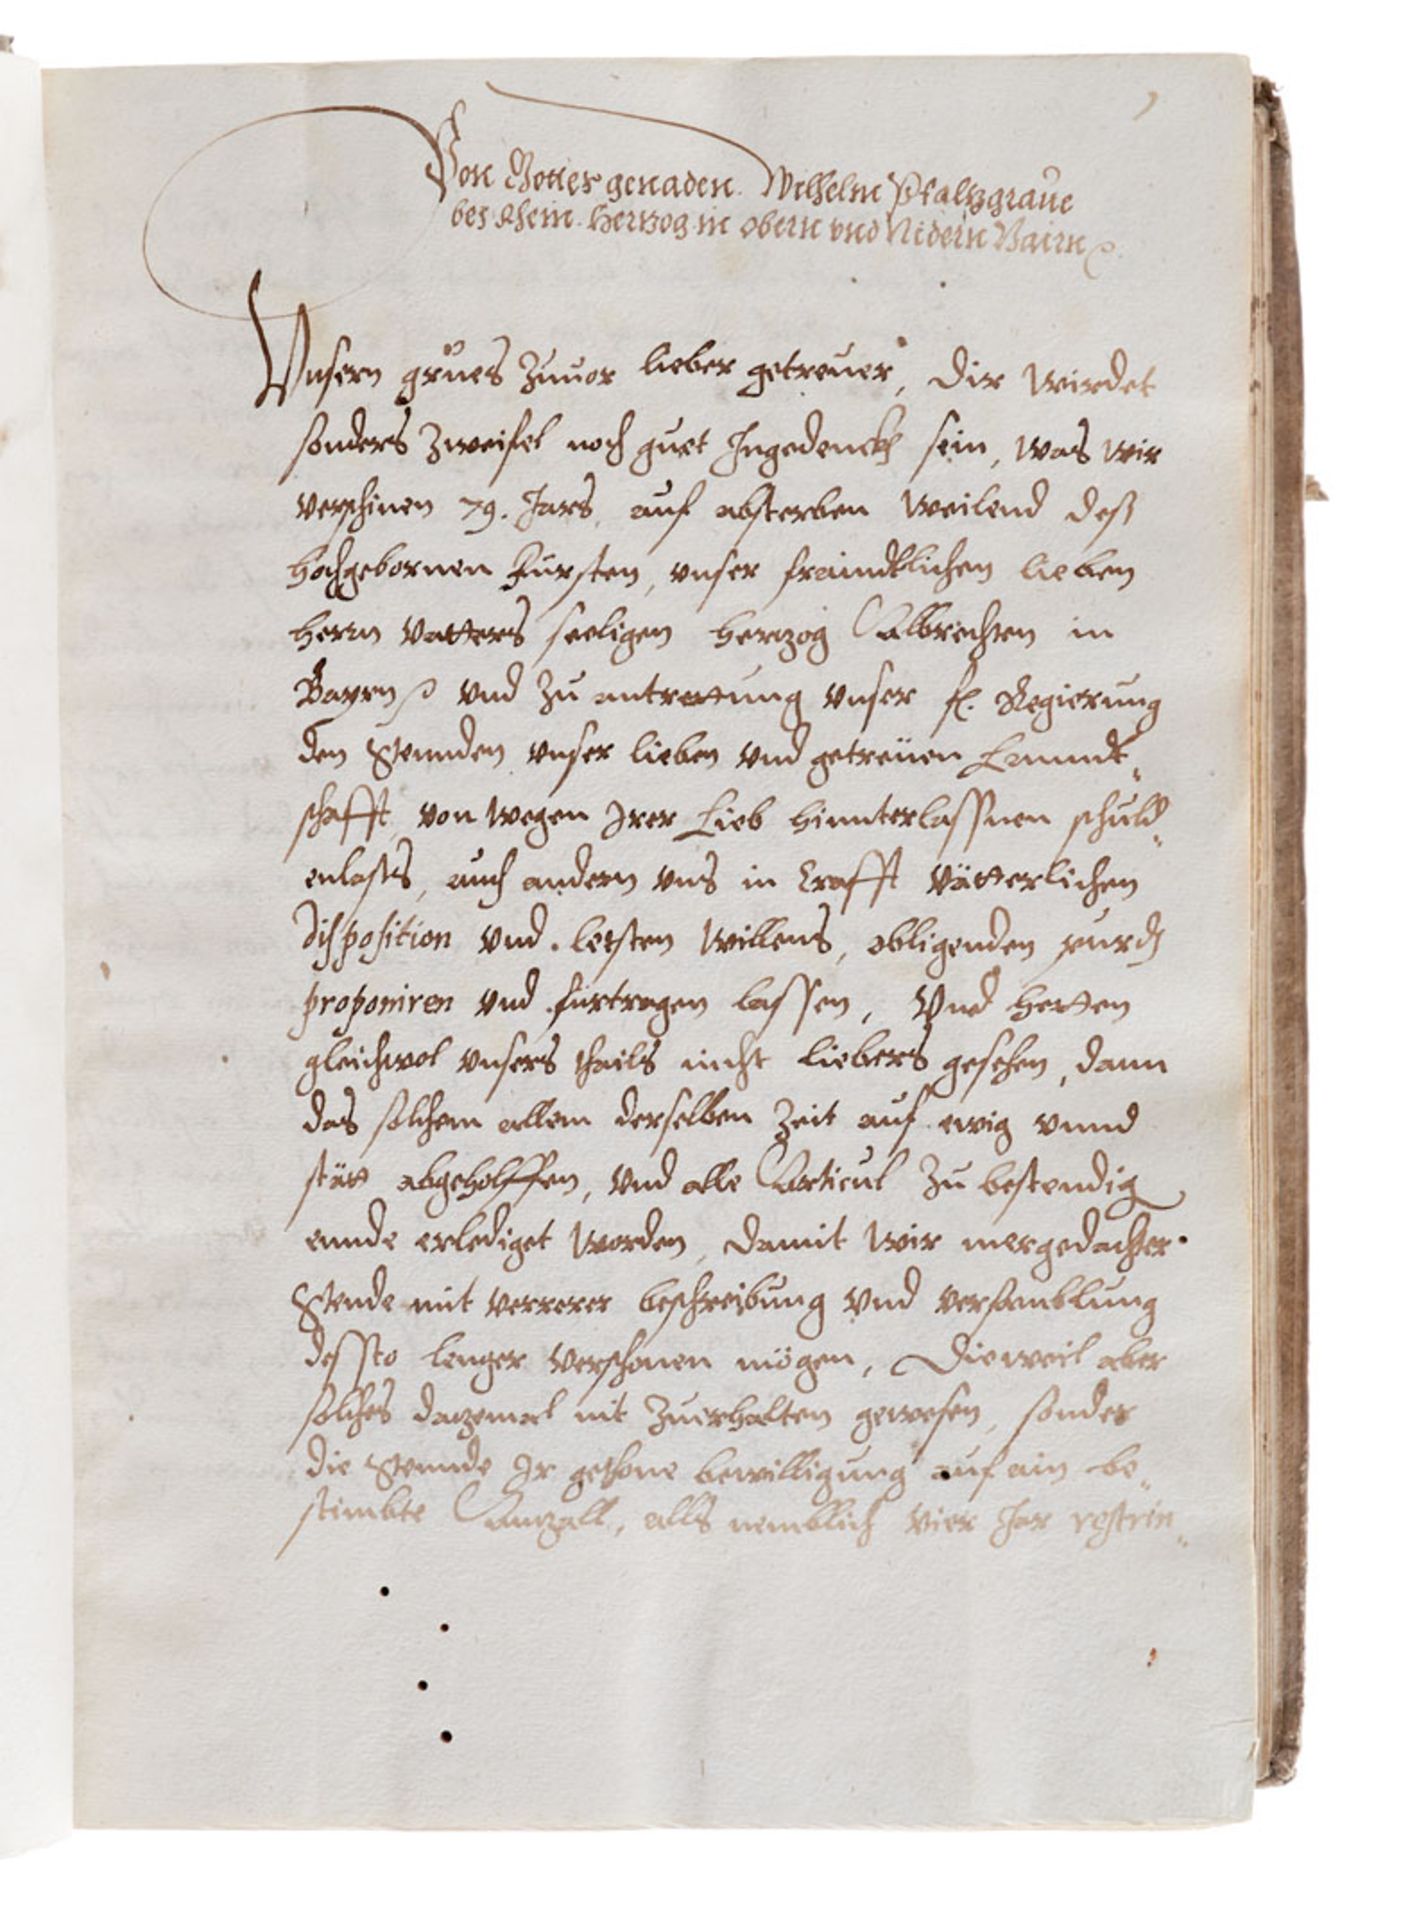 Von Gottes genaden. Wilhelm Pfaltzgraue
bey Rhein. Hertzog in obern vnd Nidern Bairn
Vnsern grues zuuor lieber getreuer, Dir wirdet
sonders zweifel noch guet Ingedenckh sein, was wir
verschinen 79. Jars, auf absterben weilend deß
hochgebornen Fürsten, vnser fraindtlichen lieben
herrn vatters seeligen herzog Albrechten in
Bayrn vnd zu antrettung vnser fl. Regierung
den Stennden vnser lieben vnd getreüen Lanndt„
schafft, von wegen Irer Lieb hinnterlassnen schuld„
enlasts, auch andern vns in krafft vätterlichen
disposition vnd letsten willens, obligenden purd
proponiren vnd fürtragen lassen, Vnd hetten
gleichwol vnsers thails nicht liebers gesehen, dann
das solchem allem derselben zeit auf ewig vnnd
stätt abgeholffen, vnd alle Articul zu bestendig
ennde erlediget worden, damit wir mergedachter
Stende mit verrerer beschreibung vnd versamblung
dessto lenger verschonen mögen, Dieweil aber
solches dazemal nit zuerhalten gewesen, sonder
die Stennde Ir gethone bewilligung auf ain be„
stimbte Anzall, alls nemblich vier Jar restrin„